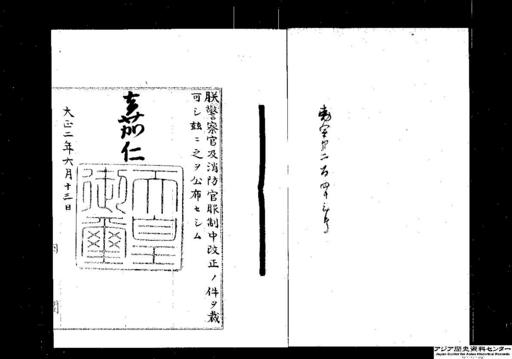 勅令第二百四十三号
朕警察官及消防官服制中改正ノ件ヲ裁
可シ玆ニ之ヲ公布セシム
嘉仁
天皇
御璽
大正二年六月十三日
アジア歴史資料センター
Japan Center for Asian Historical Records